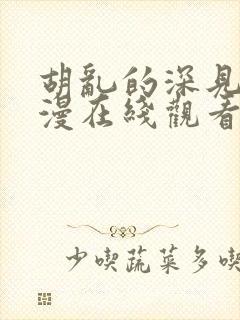 胡亂的深見
漫在綫觀看
少喫蔬菜多喫